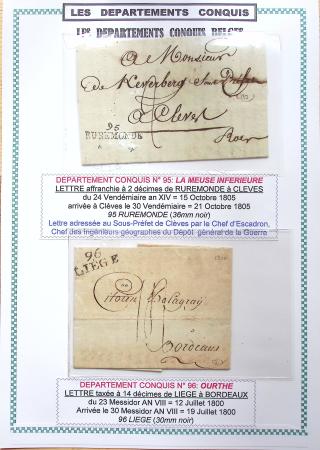 LES DEPARTEMENTS CONQUIS
LES DEPARTEMENTS CONQUIS BELGES
A Monsieur
de Keverberg Sous Préfet
à Cleves
95
RUREMONDE
Roer
DEPARTEMENT CONQUIS N° 95: LA MEUSE INFERIEURE
LETTRE affranchie à 2 décimes de RUREMONDE à CLEVES
du 24 Vendémiaire an XIV = 15 Octobre 1805
arrivée à Clèves le 30 Vendémiaire = 21 Octobre 1805
95 RUREMONDE (36mm noir)
Lettre adressée au Sous-Préfet de Clèves par le Chef d'Escadron,
Chef des Ingénieurs géographes du Dépôt général de la Guerre
96
LIEGE
Citoien Balaguay
à
Bordeaux
DEPARTEMENT CONQUIS N° 96: OURTHE
LETTRE taxée à 14 décimes de LIEGE à BORDEAUX
du 23 Messidor AN VIII = 12 Juillet 1800
Arrivée le 30 Messidor AN VIII = 19 Juillet 1800
96 LIEGE (30mm noir)